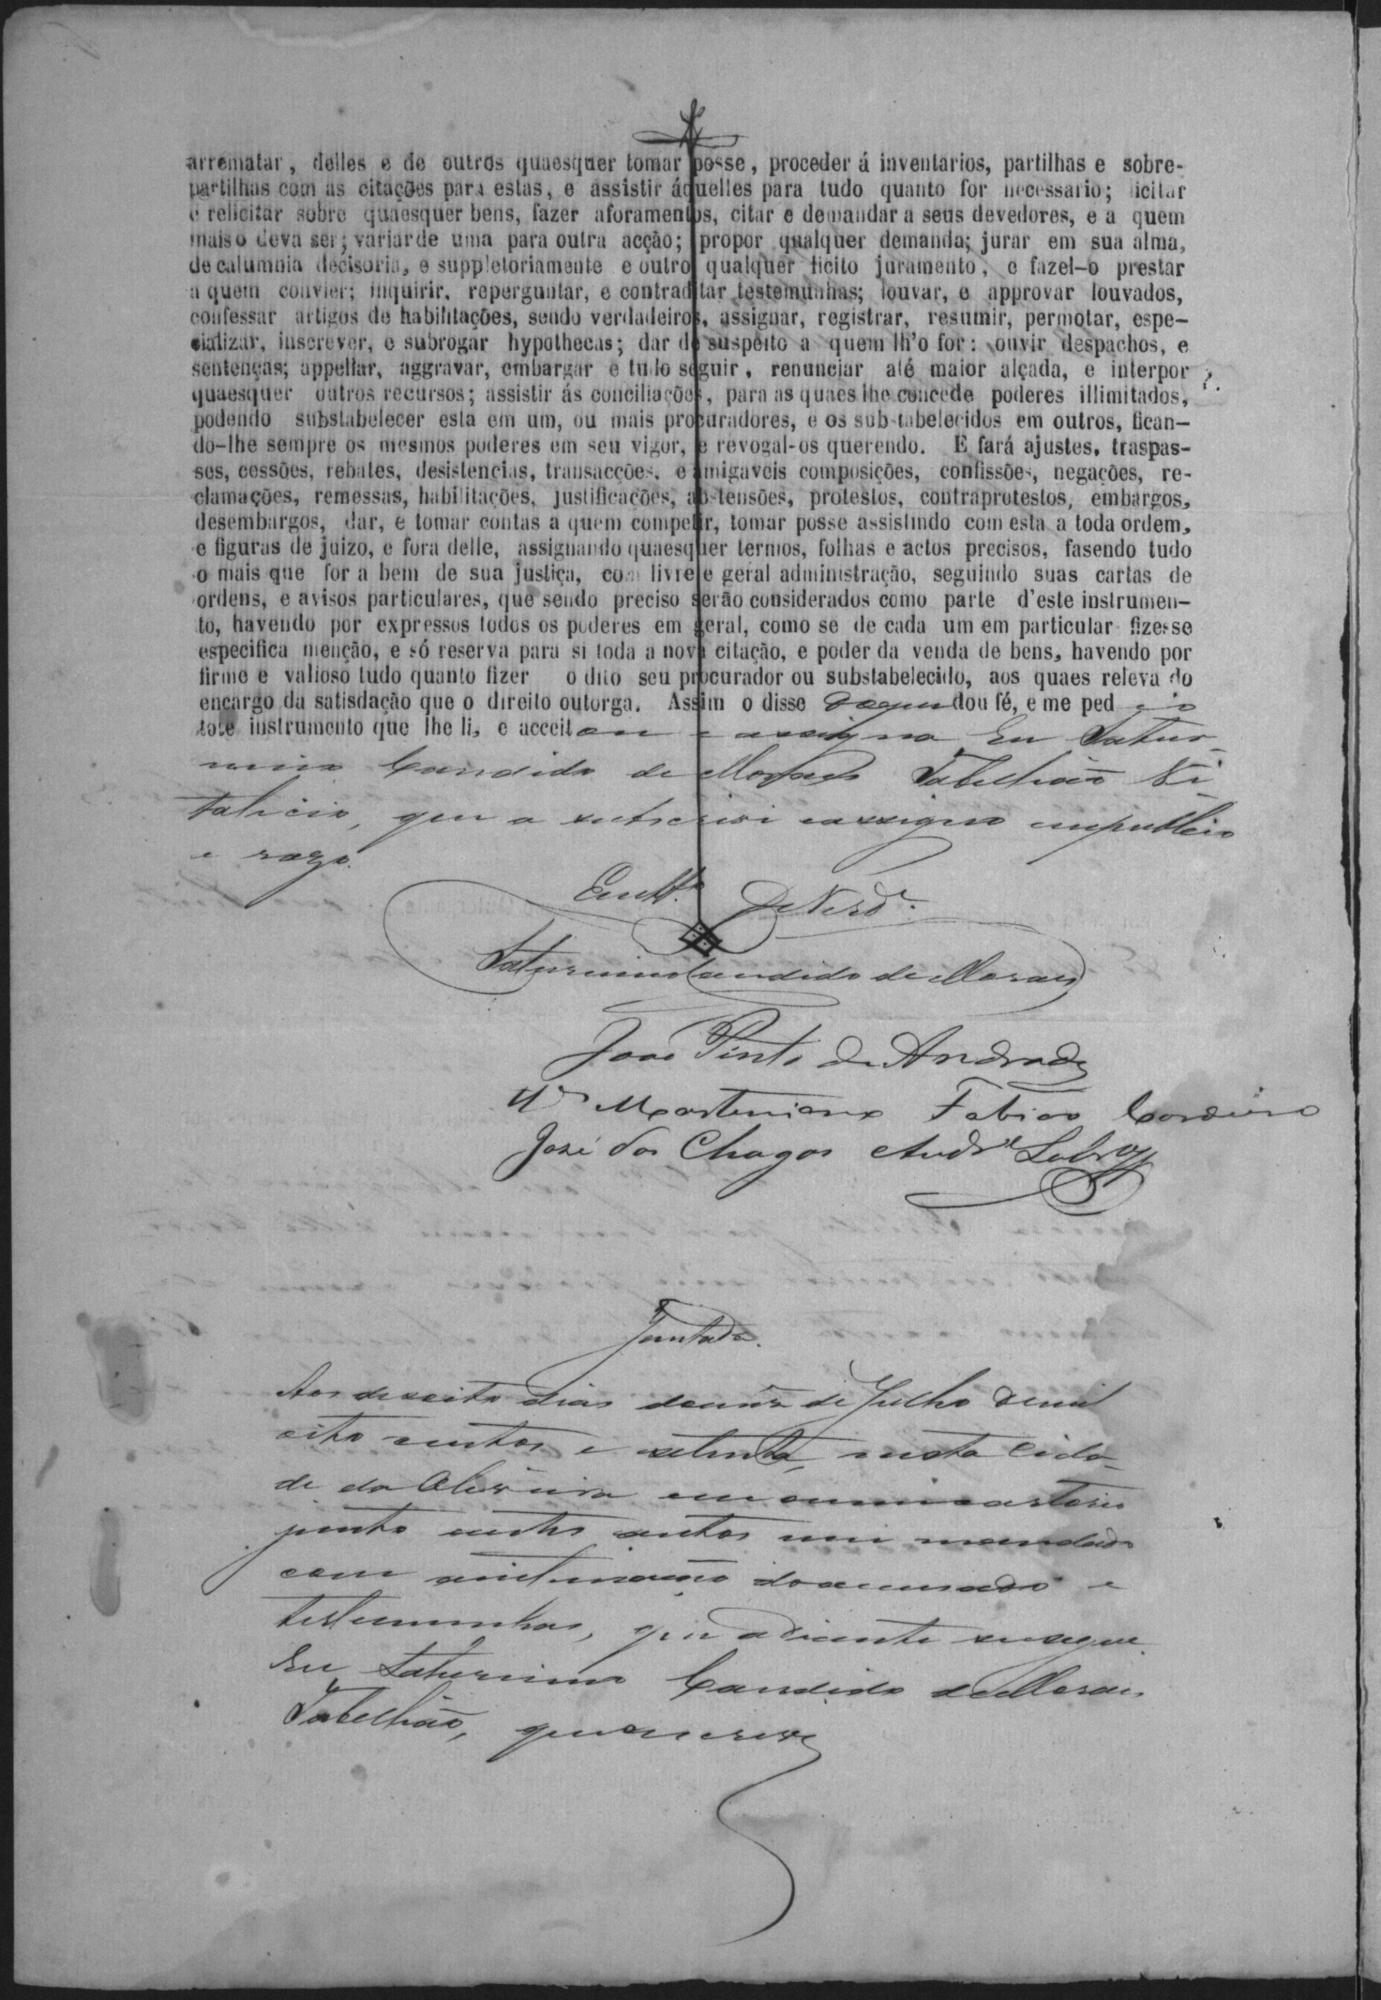 arrematar, delles e de outros quaesquer tomar posse, proceder á inventarios, partilhas e sobre-
partilhas com as citações para estas, e assistir áquelles para tudo quanto for necessario; licitar
e relicitar sobre quaesquer bens, fazer aforamentos, citar e demandar a seus devedores, e a quem
mais o deva ser; variar de uma para outra acção; propor qualquer demanda; jurar em sua alma,
de calumnia decisoria, e suppletoriamente e outro qualquer licito juramento, e fazel-o prestar
a quem convier; inquirir, reperguntar, e contraditar testemunhas; louvar, e approvar louvados,
confessar artigos de habilitações, sendo verdadeiros, assignar, registrar, resumir, permotar, espe-
cializar, inscrever, e subrogar hypothecas; dar de suspeito a quem lh'o for: ouvir despachos, e
sentenças; appellar, aggravar, embargar e tudo seguir, renunciar até maior alçada, e interpor
quaesquer outros recursos; assistir ás conciliações, para as quaes lhe concede poderes illimitados,
podendo substabelecer esta em um, ou mais procuradores, e os substabelecidos em outros, fican-
do-lhe sempre os mesmos poderes em seu vigor, e revogal-os querendo. E fará ajustes, traspas-
ses, cessões, rebates, desistencias, transacções, e amigaveis composições, confissões, negações, re-
clamações, remessas, habilitações, justificações, abstensões, protestos, contraprotestos, embargos,
desembargos, dar, e tomar contas a quem competir, tomar posse assistindo com esta a toda ordem,
e figuras de juizo, e fora delle, assignando quaesquer termos, folhas e actos precisos, fasendo tudo
o mais que for a bem de sua justiça, com livre e geral administração, seguindo suas cartas de
ordens, e avisos particulares, que sendo preciso serão considerados como parte d'este instrumen-
to, havendo por expressos todos os poderes em geral, como se de cada um em particular fizesse
especifica menção, e só reserva para si toda a nova citação, e poder da venda de bens, havendo por
firme e valioso tudo quanto fizer o dito seu procurador ou substabelecido, aos quaes releva do
encargo da satisdação que o direito outorga. Assim o disse doque dou fé, e me ped io
este instrumento que lhe li, e acceitou e assigna Eu Satur-
nino Candido de Moraes Tabellião Vi-
talicio, que a subscrevi e assigno em publico
e raso.
Em Tt.º De Verd.e
Saturnino Candido de Moraes
João Pinto de Andrade
Marteniano Fabiao Cordeiro
José das Chagas Andr.e
Juntada.
Aos desoito dias do mez de Julho de mil
oito centos e setenta, nesta Cida-
de da Oliveira em o meu cartorio
junto a estes autos um mandado
com a intimação do accusado e
testemunhas, que adiante se segue
Eu Saturnino Candido de Moraes
Tabellião, que o escrevi